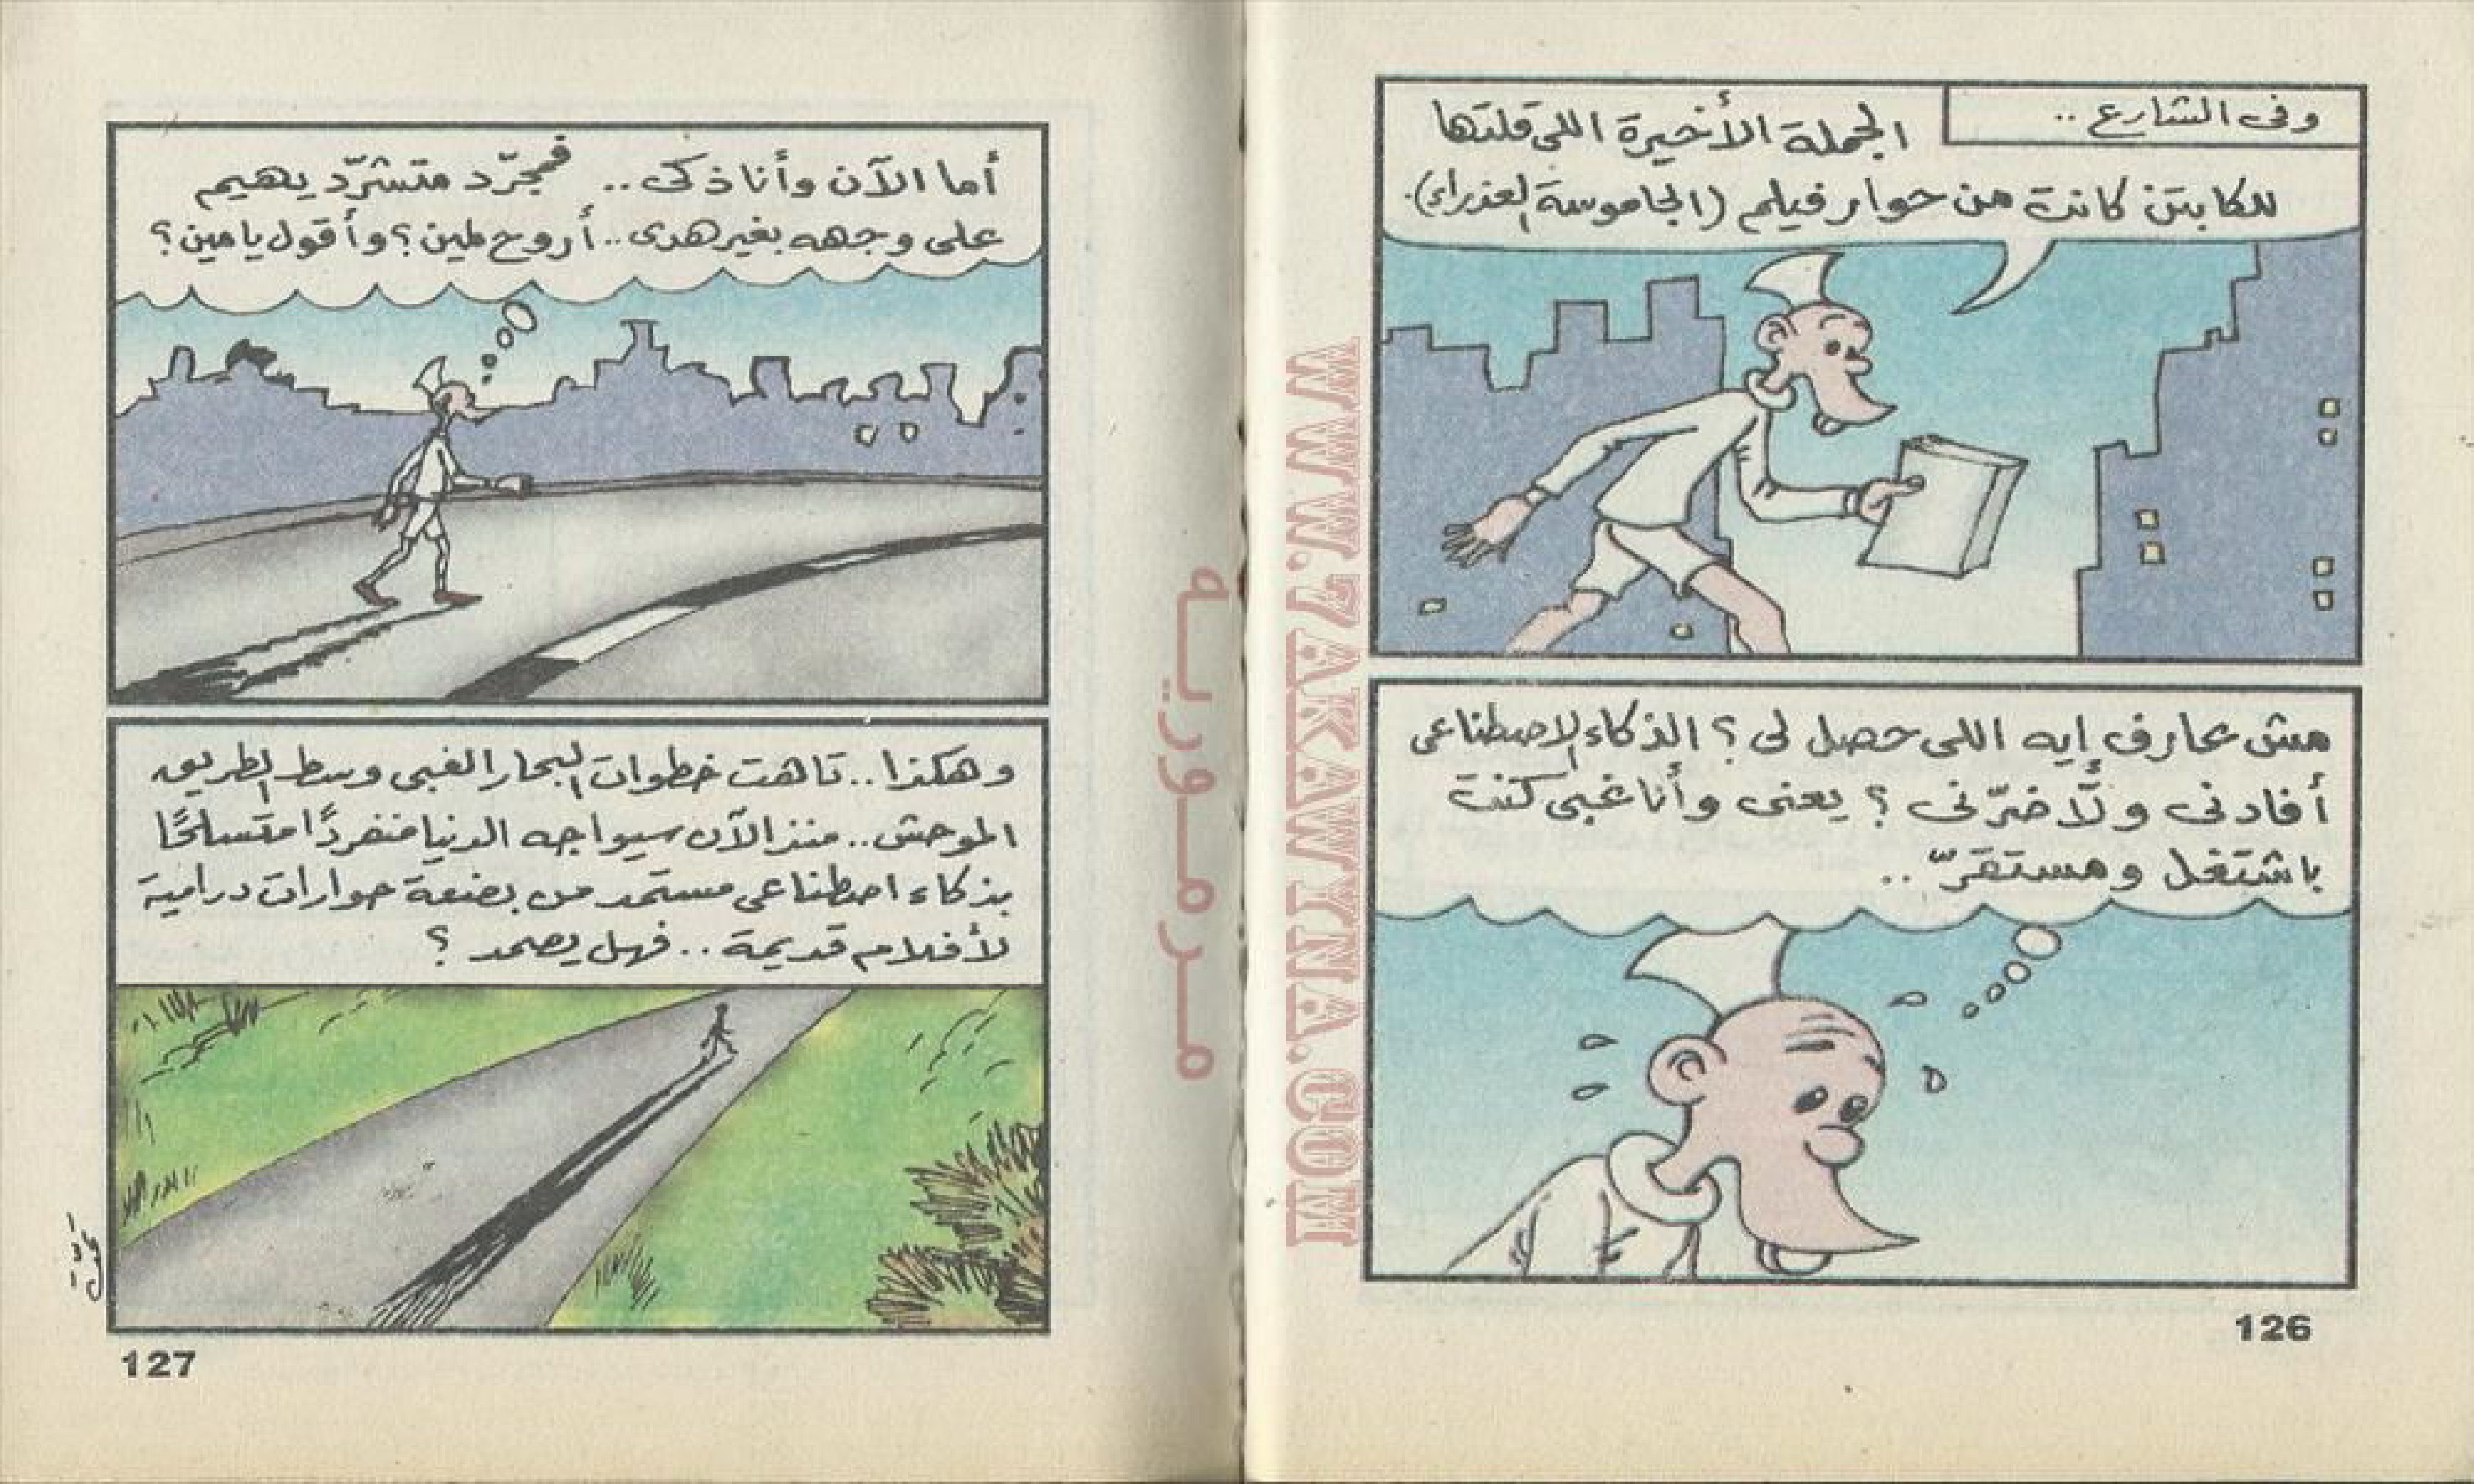 وفى الشارع ..
الجملة الأخيرة اللى قلتها
للكابتن كانت من حوار فيلم (الجاموسة العذراء).
مش عارف إيه اللى حصل لى؟ الذكاء الاصطناعى
أفادنى ولَّا ضرّنى؟ يعنى وأنا غبى كنت
باشتغل ومستقرّ ..
126
أما الآن وأنا ذكى .. فمجرّد متشرّد يهيم
على وجهه بغير هدى .. أروح لمين؟ وأقول يا مين؟
وهكذا .. تاهت خطوات البحار الغبى وسط الطريق
الموحش .. منذ الآن سيواجه الدنيا منفردًا متسلحًا
بذكاء اصطناعى مستمد من بضعة حوارات درامية
لأفلام قديمة .. فهل يصمد؟
127
WWW.7AKAWYNA.COM
مرمورية